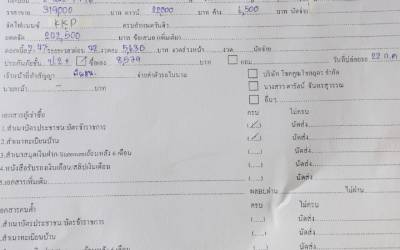 ราคาขาย 319,000 บาท ดาวน์ 22000 บาท ค้าง 6,500 บาท นัดจ่าย
จัดไฟแนนซ์ KKP ครบกำหนดวันที่
ยอดจัด 202,500 บาท ข้อเสนอเพิ่มเติม)
ดอกเบี้ย 7.47 ระยะเวลาผ่อน 72 งวดๆ 5630 บาท งวดล่วงหน้า งวด นัดจ่าย
ประกันภัยชั้น ป.2+ ซื้อเอง 8,579 บาท แถม วันที่ปล่อยรถ 22 ก.ค
เจ้าหน้าที่ทำสัญญา จ่ายค่าตัวรถในนาม บริษัท จำกัด
นายหน้า นางสาวดารัณี จันทรสุวรรณ
อื่นๆ
เอกสารผู้เช่าซื้อ ครบ ไม่ครบ
1.สำเนาบัตรประชาชน/บัตรข้าราชการ (...✓...) นัดส่ง
2.สำเนาทะเบียนบ้าน (...✓...) นัดส่ง
3.สำเนาสมุดเงินฝาก/Statementย้อนหลัง 6 เดือน (......) นัดส่ง
4.หนังสือรับรองเงินเดือน/สลิปเงินเดือน (......) นัดส่ง
5.เอกสารเพิ่มเติม (......) นัดส่ง
ผลอนุมัติ ผ่าน ไม่ผ่าน
เอกสารคนค้ำ ครบ ไม่ครบ
1.สำเนาบัตรประชาชน/บัตรข้าราชการ (......) นัดส่ง
2.สำเนาทะเบียนบ้าน (......) นัดส่ง
ย้อนหลัง 6 เดือน (......) นัดส่ง